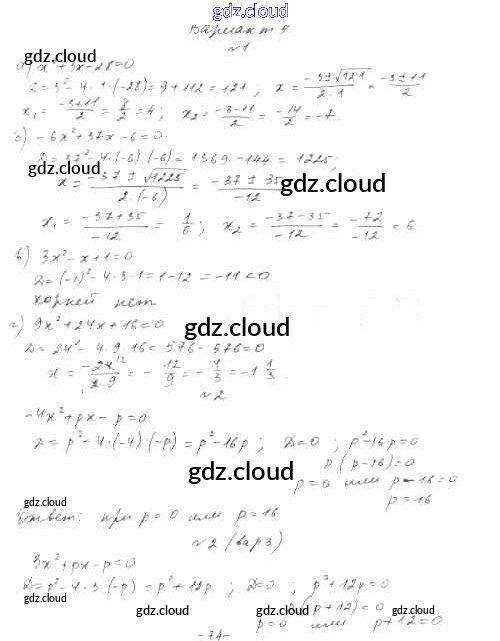 gdz.cloud
Вариант 4
gdz.cloud gdz.cloud
№1
а) x² + 3x - 28 = 0
D = 3² - 4 · 1 · (-28) = 9 + 112 = 121 ; x = (-3 ± √121)/(2 · 1) = (-3 ± 11)/2
x₁ = (-3 + 11)/2 = 8/2 = 4 ; x₂ = (-3 - 11)/2 = -14/2 = -7.
gdz.cloud gdz.cloud
б) -6x² + 37x - 6 = 0
D = 37² - 4 · (-6) · (-6) = 1369 - 144 = 1225 ;
gdz.cloud
x = (-37 ± √1225)/(2 · (-6)) = (-37 ± 35)/-12
gdz.cloud
x₁ = (-37 + 35)/-12 = 1/6 ; x₂ = (-37 - 35)/-12 = -72/-12 = 6
gdz.cloud gdz.cloud
в) 3x² - x + 1 = 0
D = (-1)² - 4 · 3 · 1 = 1 - 12 = -11 < 0
корней нет
г) 9x² + 24x + 16 = 0
gdz.cloud
D = 24² - 4 · 9 · 16 = 576 - 576 = 0
x = -24/(2 · 9) = -12/9 = -4/3 = -1 1/3.
№2
-4x² + px - p = 0
D = p² - 4 · (-4) · (-p) = p² - 16p ; D = 0 ; p² - 16p = 0
p (p - 16) = 0
gdz.cloud
p = 0 или p - 16 = 0
p = 16
gdz.cloud gdz.cloud
Ответ: при p = 0 или p = 16
№2 (вар 3)
3x² + px - p = 0
D = p² - 4 · 3 · (-p) = p² + 12p ; D = 0 ; p² + 12p = 0
(p + 12) = 0
gdz.cloud gdz.cloud
p = 0 или p + 12 = 0
-74-